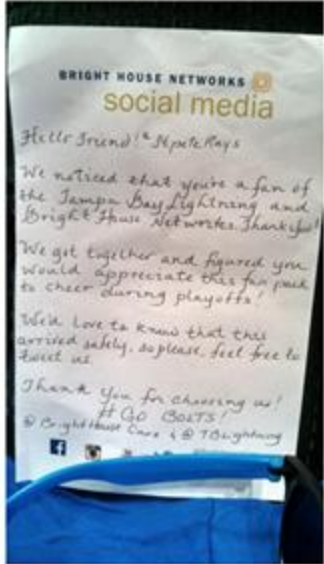 BRIGHT HOUSE NETWORKS
social media
Hello Friend! @StpeteRays
We noticed that you're a fan of
the Tampa Bay Lightning and
Bright House Networks. Thanks for!
We got together and figured you
would appreciate this fan pack
to cheer during playoffs!
We'd Love to know that this
arrived safely, so please, feel free to
tweet us
Thank you for choosing us!
# GO BOLTS!
@ BrightHouse Care & @ TBLightning